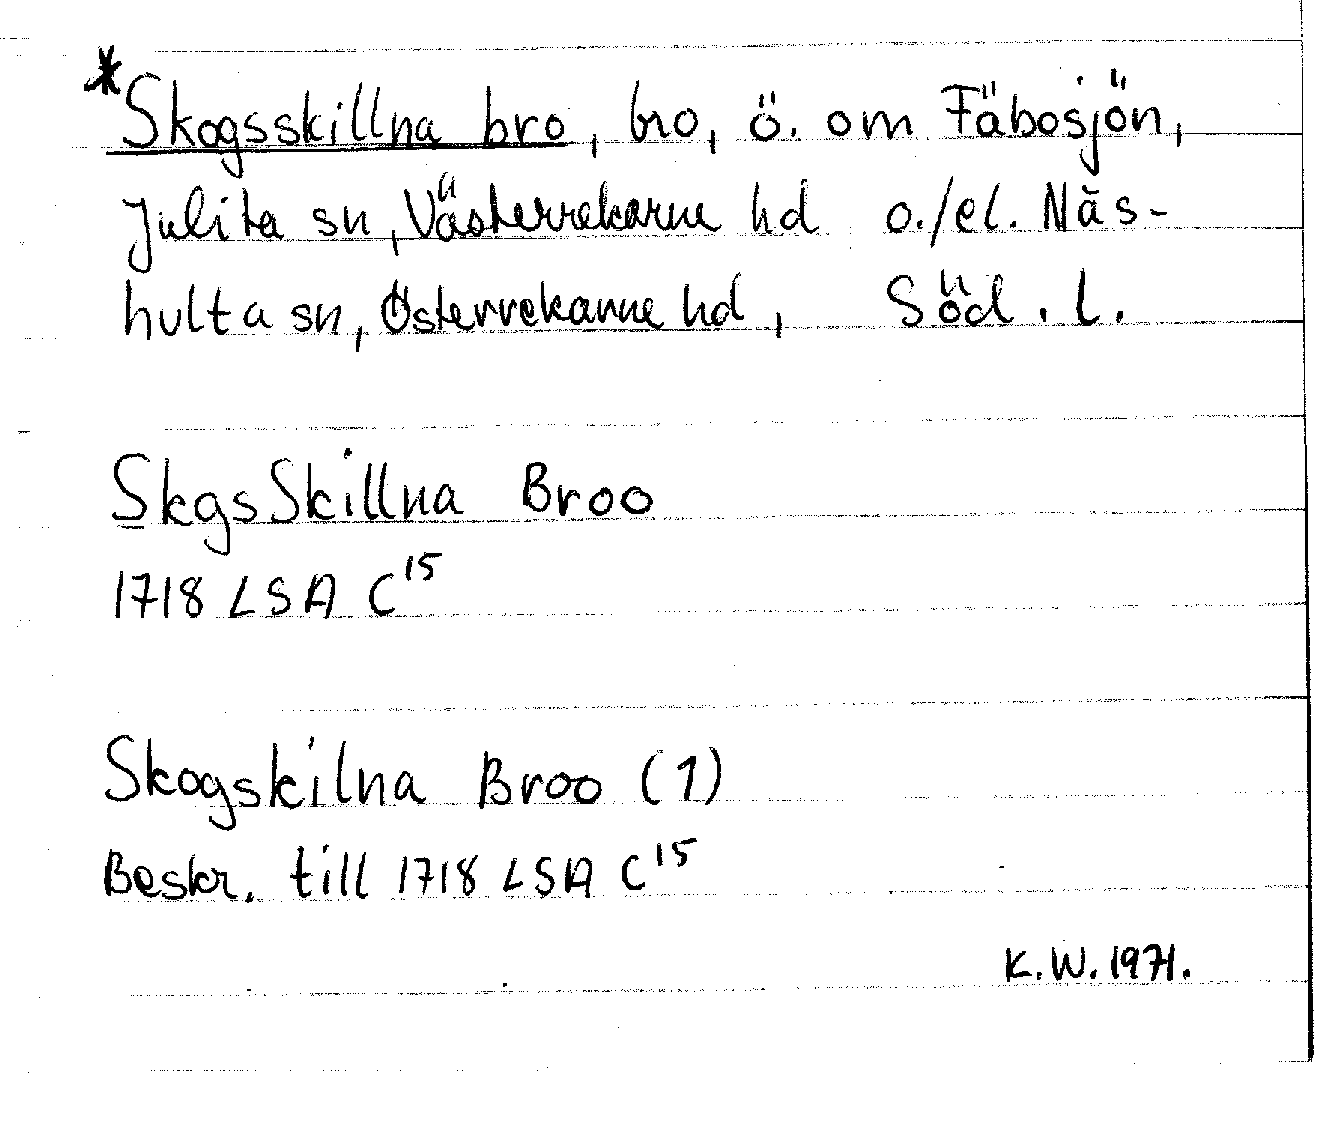 *Skogsskillna bro, bro, ö. om Fäbosjön,
Julita sn, Västerrekarne hd o./el. Näs-
hulta sn, Österrekarne hd, Söd. l.
SkgsSkillna Broo
1718 LSA C¹⁵
Skogskilna Broo (1)
Beskr. till 1718 LSA C¹⁵
K.W. 1971.